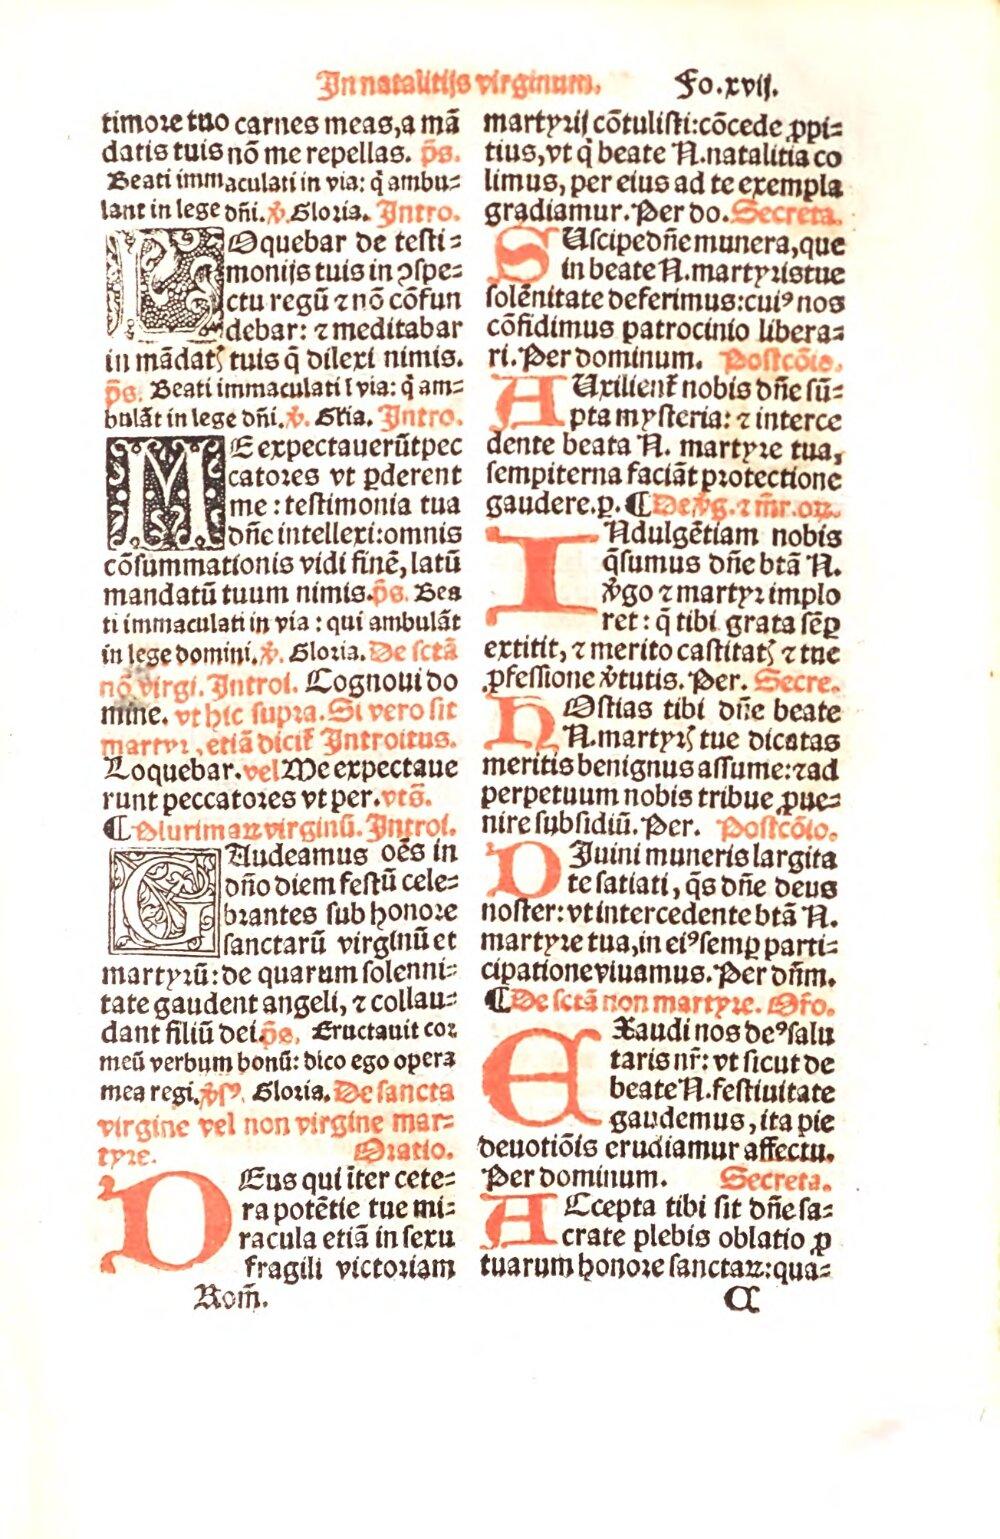 In natalitijs virginum. Fo.xvij.
timore tuo carnes meas, a mã
datis tuis nõ me repellas. p̃s.
Beati immaculati in via: q̃ ambu-
lant in lege dñi. ℣. Gloria. Intro.
LOquebar de testi-
monijs tuis in ꝯspe-
ctu regũ ⁊ nõ cõfun
debar: ⁊ meditabar
in mãdatꝭ tuis q̃ dilexi nimis.
p̃s. Beati immaculati ĩ via: q̃ am-
bulãt in lege dñi. ℣. Glĩa. Intro.
ME expectauerũt pec
catores vt ꝑderent
me: testimonia tua
dñe intellexi: omnis
cõsummationis vidi finẽ, latũ
mandatũ tuum nimis. p̃s. Bea
ti immaculati in via: qui ambulãt
in lege domini. ℣. Gloria. De sctã
nõ virgi. Introi. Cognoui do
mine. vt hic supra. Si vero sit
martyr, etiã dicit᷑ Introitus.
Loquebar. vel Me expectaue
runt peccatores vt per. vts̃.
¶ Plurimaꝝ virginũ. Introi.
GAudeamus oẽs in
dño diem festũ cele-
brantes sub honore
sanctarũ virginũ et
martyrũ: de quarum solenni-
tate gaudent angeli, ⁊ collau-
dant filiũ dei. p̃s. Eructauit cor
meũ verbum bonũ: dico ego opera
mea regi. ℣sꝰ. Gloria. De sancta
virgine vel non virgine mar-
tyre. Oratio.
DEus qui ĩter cete-
ra potẽtie tue mi-
racula etiã in sexu
fragili victoriam
Rom̃.
martyrij cõtulisti: cõcede ꝓpi-
tius, vt q̃ beate N. natalitia co
limus, per eius ad te exempla
gradiamur. Per do. Secreta.
SUscipe dñe munera, que
in beate N. martyris tue
solẽnitate deferimus: cuiꝰ nos
cõfidimus patrocinio libera-
ri. Per dominum. Postcõio.
AUxilient᷑ nobis dñe sũ-
pta mysteria: ⁊ interce
dente beata N. martyre tua,
sempiterna faciãt protectione
gaudere. p. ¶ De v̓g. ⁊ m̃r. oꝝ.
INdulgẽtiam nobis
q̃sumus dñe btã N.
v̓go ⁊ martyr implo
ret: q̃ tibi grata sẽꝑ
extitit, ⁊ merito castitatꝭ ⁊ tue
ꝓfessione v̓tutis. Per. Secre.
HOstias tibi dñe beate
N. martyrꝭ tue dicatas
meritis benignus assume: ⁊ ad
perpetuum nobis tribue ꝓue-
nire subsidiũ. Per. Postcõio.
DIuini muneris largita
te satiati, q̃s dñe deus
noster: vt intercedente btã N.
martyre tua, in eiꝰ semꝑ parti-
cipatione viuamus. Per dñm.
¶ De sctã non martyre. Oro.
EXaudi nos deꝰ salu
taris nr̃: vt sicut de
beate N. festiuitate
gaudemus, ita pie
deuotiõis erudiamur affectu.
Per dominum. Secreta.
ACcepta tibi sit dñe sa-
crate plebis oblatio ꝓ
tuarum honore sanctaꝝ: qua-
C